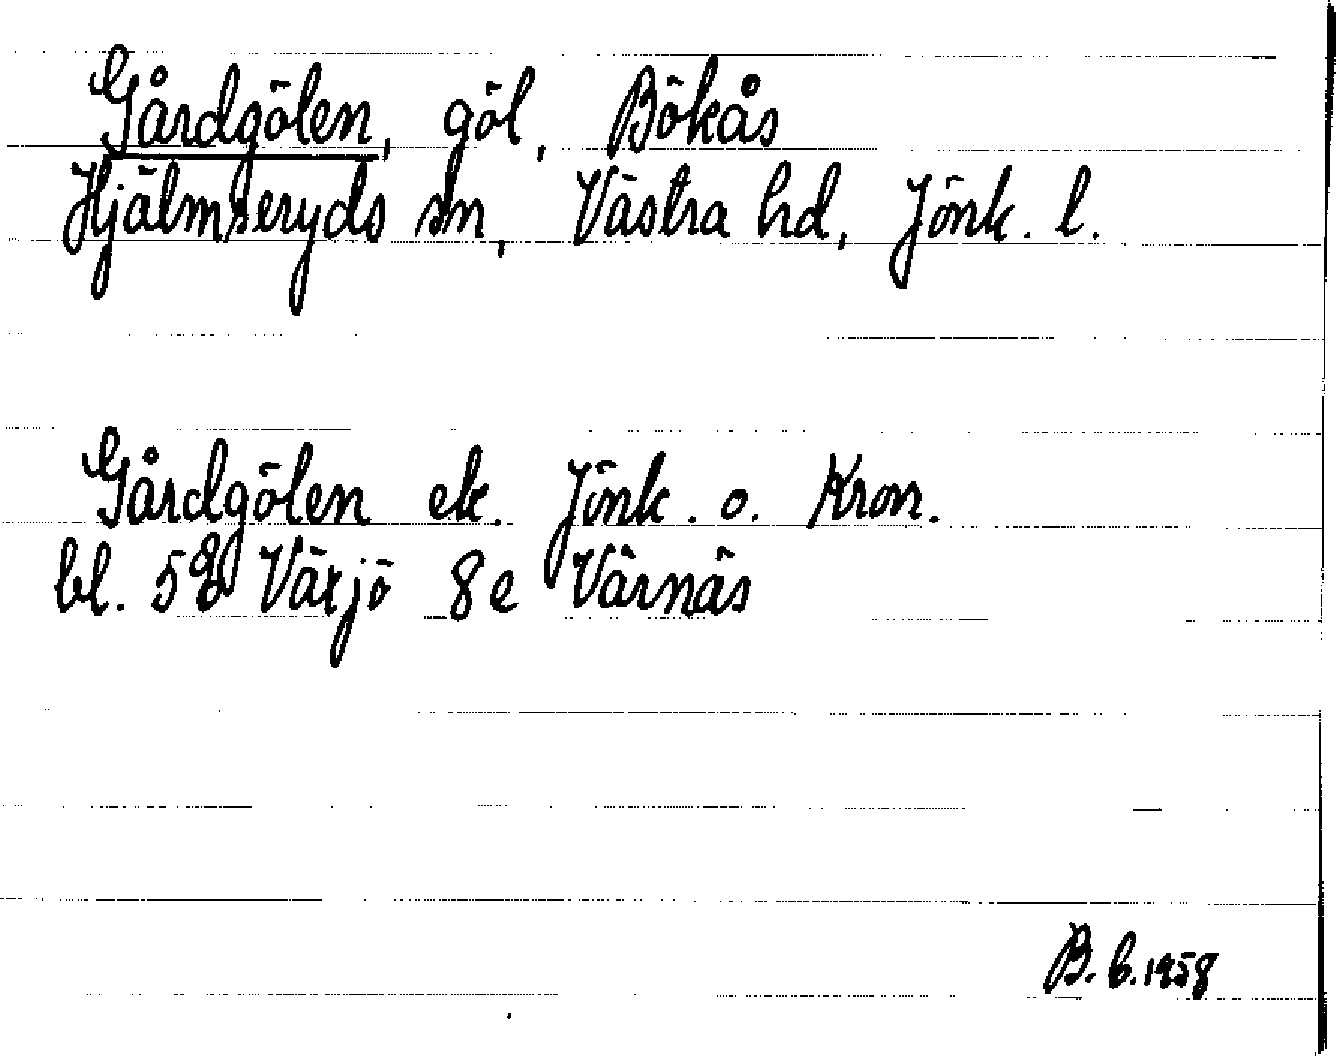 Gårdgölen, göl, Bökås
Hjälmseryds sn, Västra hd, Jönk. l.
Gårdgölen ek. Jönk. o. Kron.
bl. Växjö 8e Värnäs
B. b. 1958